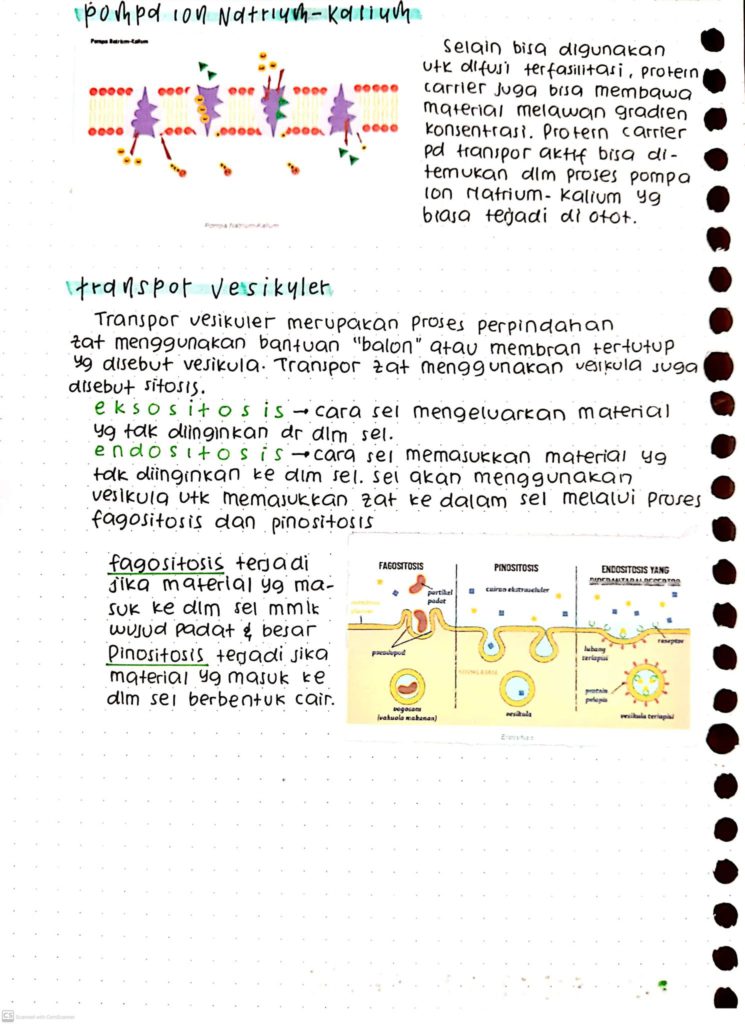 pompa ion Natrium-Kalium
Pompa Natrium-Kalium
Selain bisa digunakan
utk difusi terfasilitasi, protein
carrier juga bisa membawa
material melawan gradien
konsentrasi. Protein carrier
pd transpor aktif bisa di-
temukan dlm proses pompa
ion Natrium-Kalium yg
biasa terjadi di otot.
Pompa Natrium-Kalium
transpor vesikuler
Transpor vesikuler merupakan proses perpindahan
zat menggunakan bantuan "balon" atau membran tertutup
yg disebut vesikula. Transpor zat menggunakan vesikula juga
disebut sitosis.
eksositosis → cara sel mengeluarkan material
yg tdk diinginkan dr dlm sel.
endositosis → cara sel memasukkan material yg
tdk diinginkan ke dlm sel. Sel akan menggunakan
vesikula utk memasukkan zat ke dalam sel melalui proses
fagositosis dan pinositosis
fagositosis terjadi
jika material yg ma-
suk ke dlm sel mmlk
wujud padat & besar
Pinositosis terjadi jika
material yg masuk ke
dlm sel berbentuk cair.
FAGOSITOSIS
partikel
padat
pseudopod
vagosom
(vakuola makanan)
PINOSITOSIS
cairan ekstraseluler
vesikula
ENDOSITOSIS YANG
DIPERANTARAI RESEPTOR
reseptor
lubang
terlapisi
protein
pelapis
vesikula terlapisi
CS Scanned with CamScanner